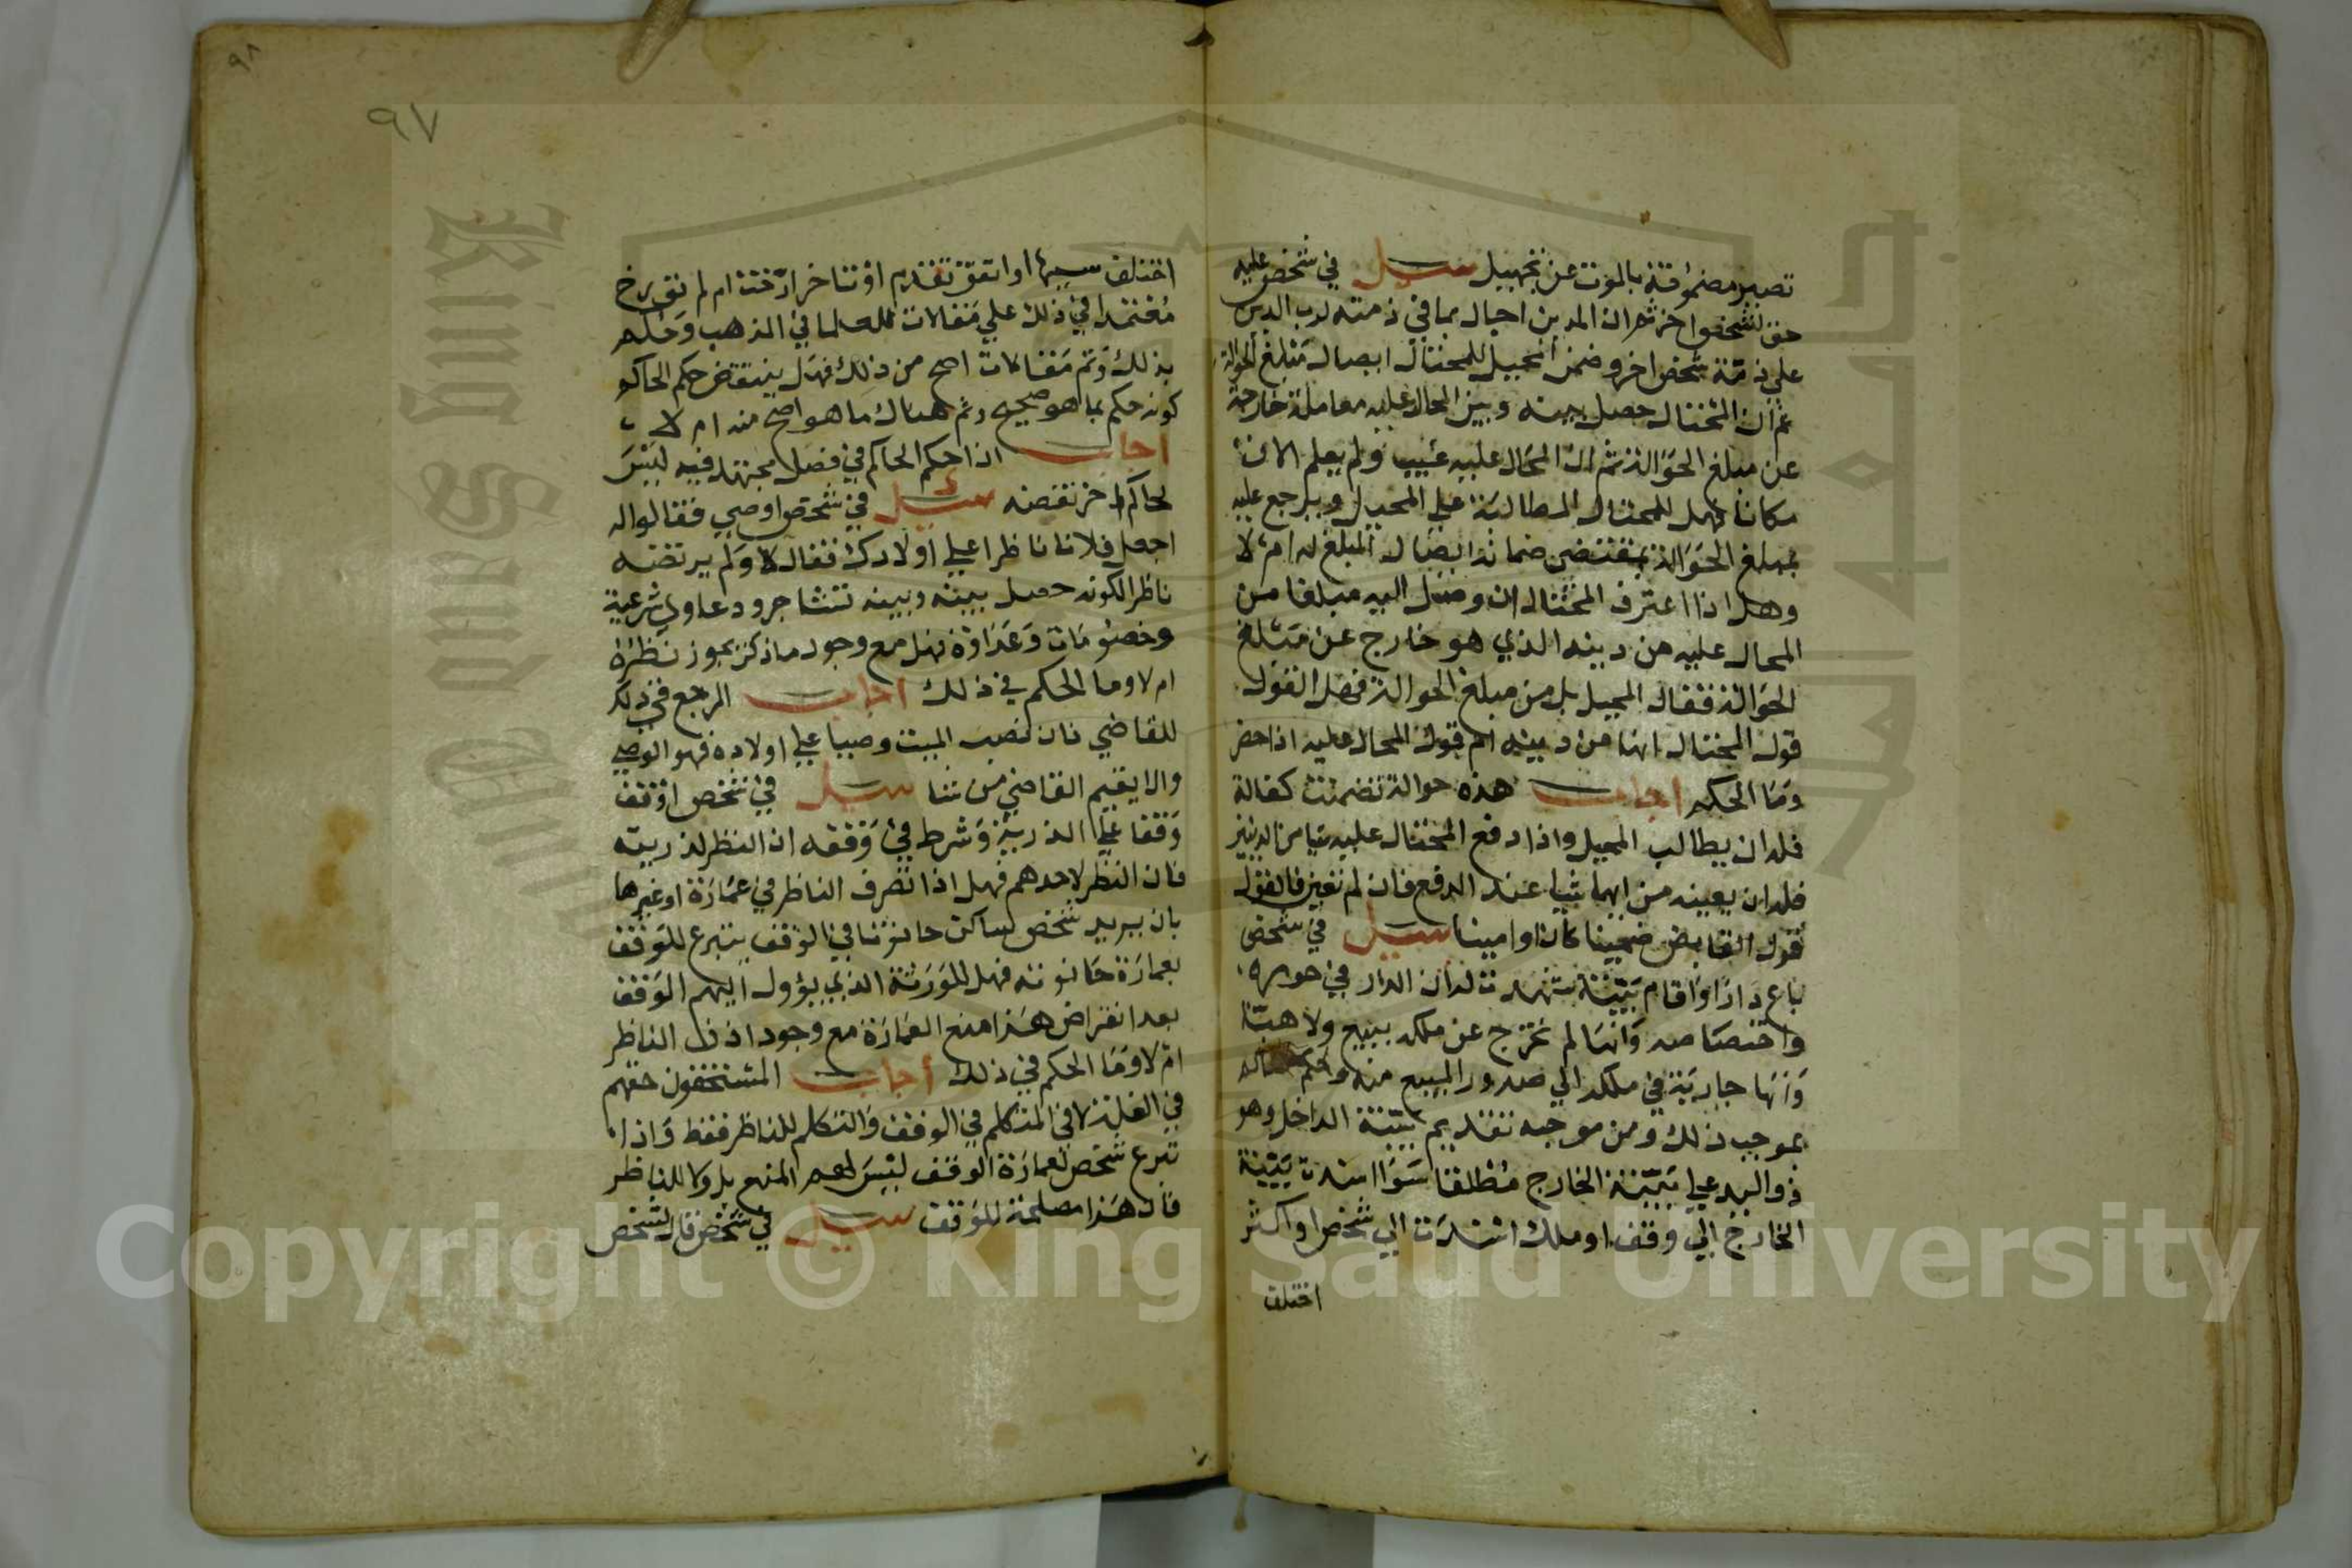 تصير مضمونة بالموت عن تجهيل سيل في شخص عليه
حق لشخص اخر ثم ان المدين احال بما في ذمته لرب الدين
علي ذمة شخص اخر وضمن المحيل للمحتال ايصال مبلغ الحوالة
ثم ان المحتال حصل بينه وبين المحال عليه معاملة خارجة
عن مبلغ الحوالة ثم ان المحال عليه غيب ولم يعلم الان
مكانا فهل للمحتال المطالبة علي المحيل ويرجع عليه
بمبلغ الحوالة بمقتضي ضمانه ايصال المبلغ له ام لا
وهل اذا اعترف المحتال ان وصل اليه مبلغا من
المحال عليه من دينه الذي هو خارج عن مبلغ
الحوالة فقال المحيل بل من مبلغ الحوالة فهل القول
قول المحتال انها من دينه ام قول المحال عليه اذا حضر
وما الحكم اجاب هذه حوالة تضمنت كفالة
فله ان يطالب المحيل واذا دفع المحتال عليه شيا من الدينين
فله ان يعينه من ايهما شيا عند الدفع فان لم تعين فالقول
قول القابض ضمينا كان او امينا سيل في شخص
باع دارا واقام بينة شهدت له ان الدار في حوزه
واختصاصه وانها لم تخرج عن ملكه ببيع ولا هبة
وانها جارية في ملكه الي صدور المبيع منه وحكم
بموجب ذلك ومن موجبه تقديم بينة الداخل وهو
ذو اليد علي بينة الخارج مطلقا سوا اسندت بينة
الخارج الي وقف او ملك استندت الي شخص او اكثر
اختلف
٩٨
٩٧
اختلف سببها او اتفق تقدم او تاخر ارخت ام لم تورخ
معتمدا في ذلك علي مقالات للعلما في المذهب وحكم
بذلك وثم مقالات اصح من ذلك فهل ينتقض حكم الحاكم
كونه حكم بما هو صحيح وثم هناك ما هو اصح منه ام لا
اجاب اذا حكم الحاكم في فصل مجتهد فيه ليس
لحاكم اخر نقضه سيل في شخص اوصي فقالوا له
اجعل فلانا ناظرا علي اولادك فقال لا ولم يرتضه
ناظرا لكونه حصل بينه وبينه تشاجر ودعاوي شرعية
وخصومات وعداوة فهل مع وجود ما ذكر يجوز نظره
ام لا وما الحكم في ذلك اجاب المرجع في ذلك
للقاضي فان نصب الميت وصيا علي اولاده فهو الوصي
والا يقيم القاضي من شا سيل في شخص اوقف
وقفا علي الذرية وشرط في وقفه ان النظر لذريته
فان النظر لاحدهم فهل اذا تصرف الناظر في عمارة او غيرها
بان يريد شخص ساكن حانوتا في الوقف يتبرع للوقف
بعمارة حانوته فهل للورثة الذي يؤول اليهم الوقف
بعد انقراض هذا منع العمارة مع وجود اذن الناظر
ام لا وما الحكم في ذلك اجاب المستحقون حقهم
في الغلة لا في المتكلم في الوقف والتكلم للناظر فقط واذا
تبرع شخص لعمارة الوقف ليس لهم المنع بل ولا للناظر
فان هذا مصلحة للوقف سيل في شخص قال لشخص
Copyright © King Saud University